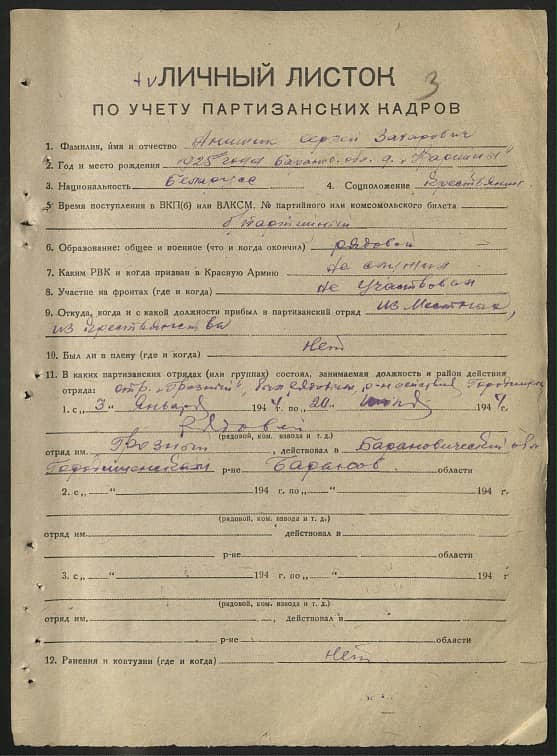 ЛИЧНЫЙ ЛИСТОК 3
ПО УЧЕТУ ПАРТИЗАНСКИХ КАДРОВ
1. Фамилия, имя и отчество Сергей Захарович
2. Год и место рождения 1925 года Баранов. обл. д.
3. Национальность Беларусс 4. Соцположение Крестьянин
5. Время поступления в ВКП(б) или ВЛКСМ, № партийного или комсомольского билета
б/партийный
6. Образование: общее и военное (что и когда окончил) рядовой —
7. Каким РВК и когда призван в Красную Армию не служил
8. Участие на фронтах (где и когда) не участвовал
9. Откуда, когда и с какой должности прибыл в партизанский отряд из местных,
из крестьянства
10. Был ли в плену (где и когда) Нет
11. В каких партизанских отрядах (или группах) состоял, занимаемая должность и район действия
отряда: отр. „Грозный", был рядовым,
1. с „ 3 " Января 1944 г. по „ 20 " 1944 г.
Рядовой
(рядовой, ком. взвода и т. д.)
отряд им. Грозный, действовал в Барановической обл
Городищенском р-не Баранов. области
2. с „ " 194 г. по „ " 194 г.
(рядовой, ком. взвода и т. д.)
отряд им. действовал в
р-не области
3. с „ " 194 г. по „ " 194 г
(рядовой, ком. взвода и т. д.)
отряд им. , действовал в
р-не области
12. Ранения и контузии (где и когда) нет